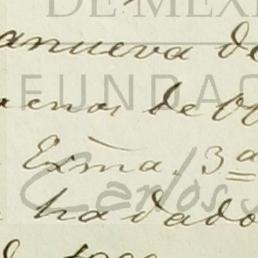 DE MÉXI
anueva de
FUNDAC
enos de
Exma. 3ª
Carlos S
ha dado